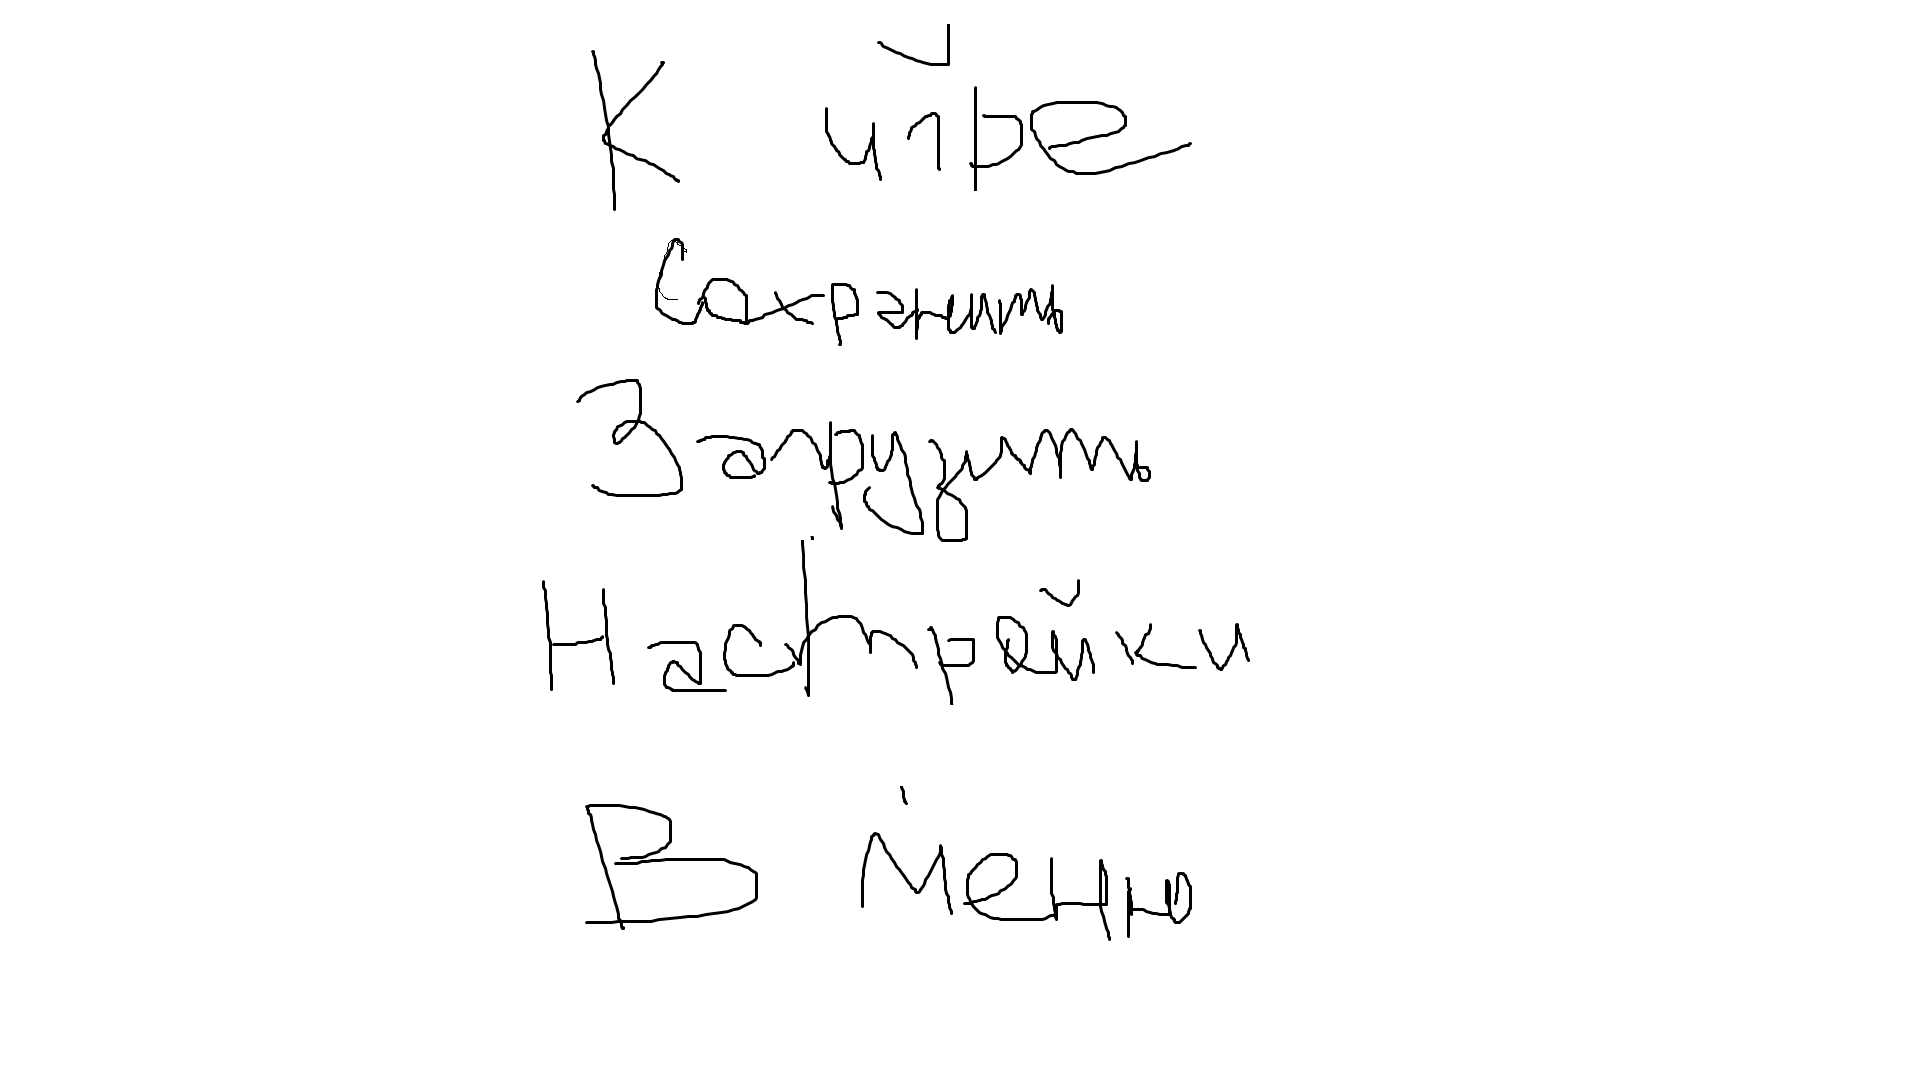 К игре
Сохранить
Загрузить
Настройки
В меню